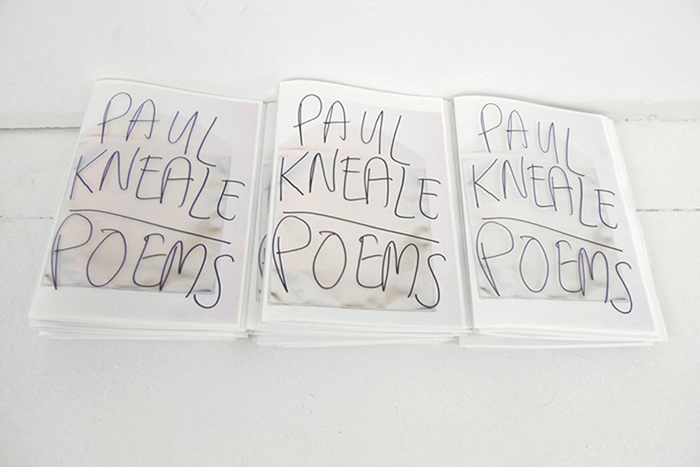 PAUL
KNEALE
POEMS
PAUL
KNEALE
POEMS
PAUL
KNEALE
POEMS